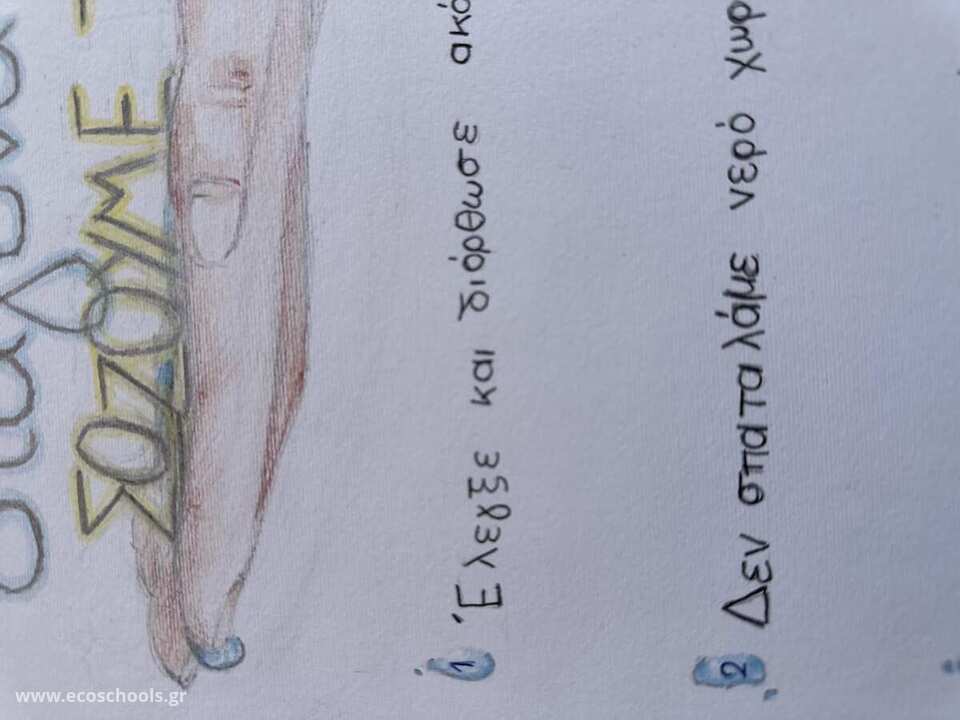 ΣΟΖΟΥΜΕ
1 Έλεγξε και διόρθωσε ακό
2 Δεν σπαταλάμε νερό χωρ
www.ecoschools.gr